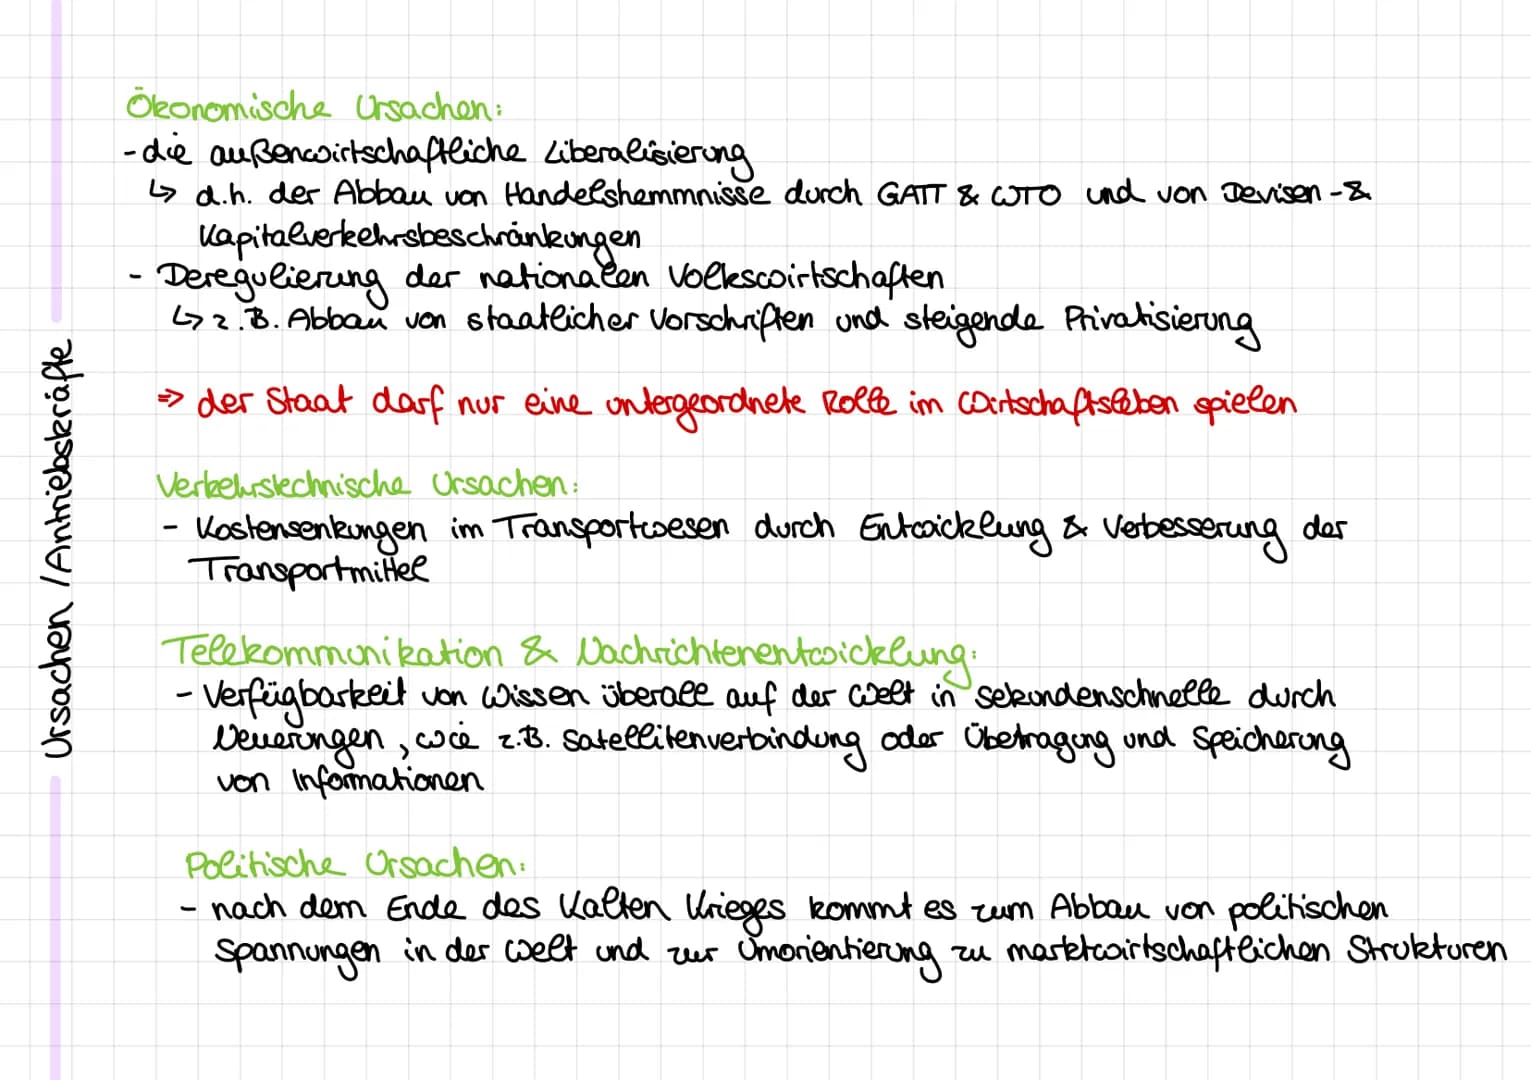 Ursachen / Antriebskräfte
Ökonomische Ursachen:
- die außenwirtschaftliche Liberalisierung
↳ d.h. der Abbau von Handelshemmnisse durch GATT & WTO und von Devisen-&
Kapitalverkehrsbeschränkungen
- Deregulierung der nationalen Volkswirtschaften
↳ z.B. Abbau von staatlicher Vorschriften und steigende Privatisierung
=> der Staat darf nur eine untergeordnete Rolle im Wirtschaftsleben spielen
Verkehrstechnische Ursachen:
- Kostensenkungen im Transportwesen durch Entwicklung & Verbesserung der
Transportmittel
Telekommunikation & Nachrichtenentwicklung:
- Verfügbarkeit von Wissen überall auf der Welt in sekundenschnelle durch
Neuerungen, wie z.B. Satellitenverbindung oder Übetragung und Speicherung
von Informationen
Politische Ursachen:
- nach dem Ende des Kalten Krieges kommt es zum Abbau von politischen
Spannungen in der Welt und zur Umorientierung zu marktwirtschaftlichen Strukturen